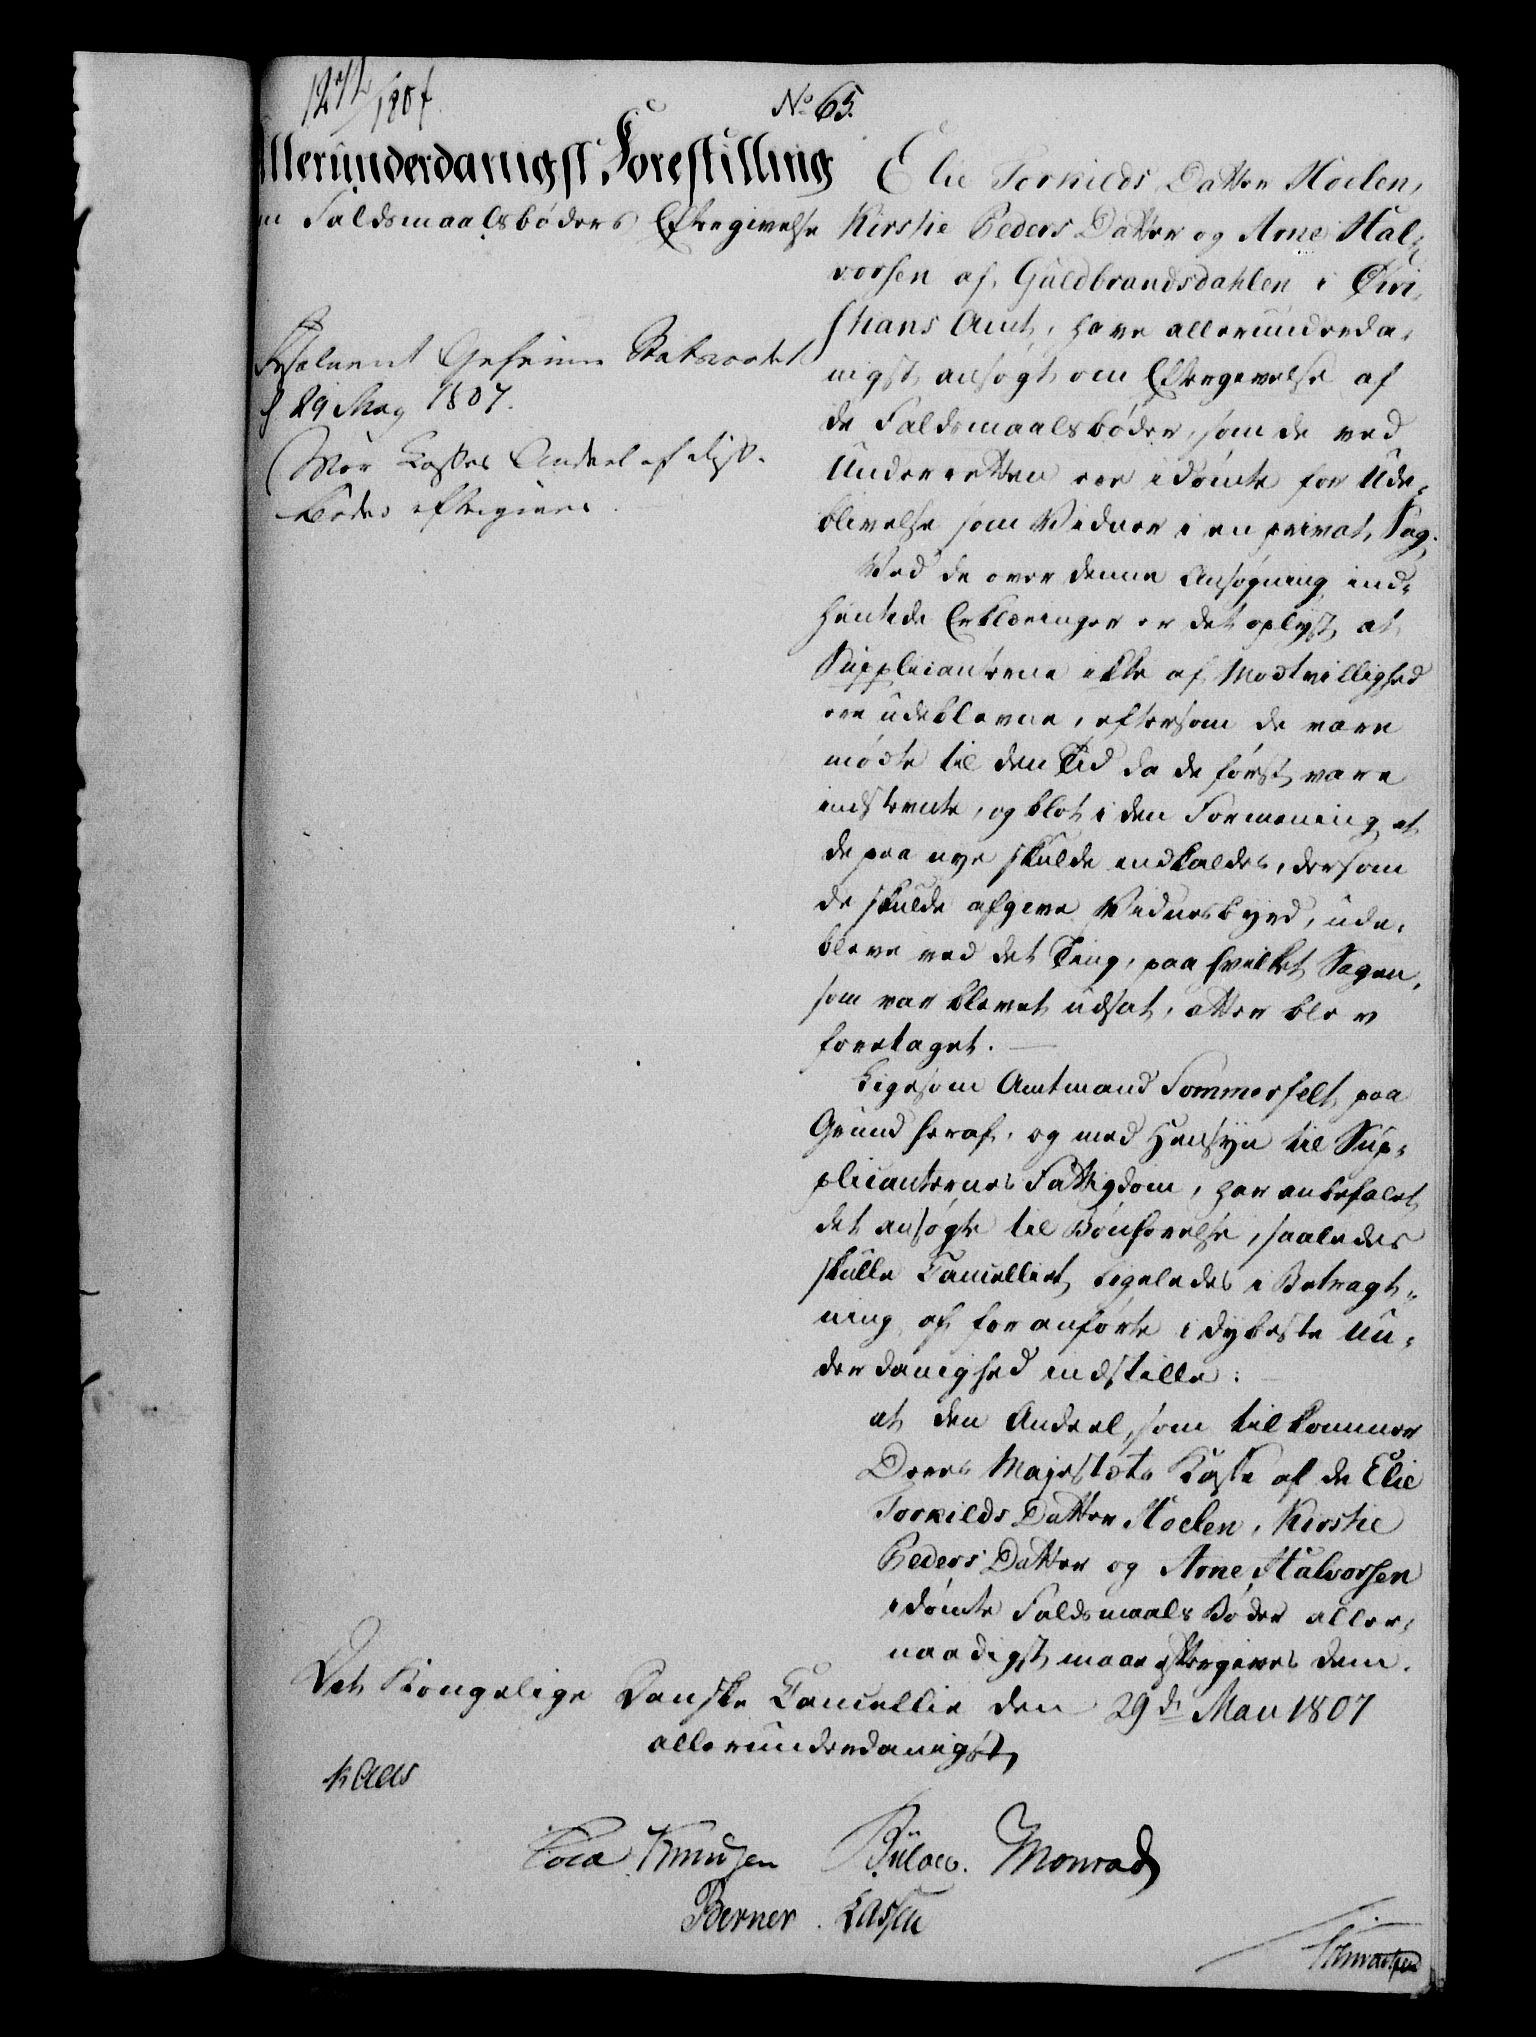 1242/1807.
No 65.
Allerunderdanigst Forestilling
om Faldsmaalsbøders Eftergivelse
Resolveret Geheime Statsraadet
d 29 May 1807.
Vor Casses Andeel af disse
Bøder eftergives.
Elie Torkilds Datter Hoelen,
Kirstie Peders Datter og Arne Hal-
vorsen af Guldbrandsdahlen i Chri-
stians Amt, have allerunderda-
nigst ansøgt om Eftergivelse af
de Faldsmaalsbøder, som de ved
Underretten ere idømte for Ude-
blivelse som Vidner i en privat Sag.
Ved de over denne Ansøgning ind-
hentede Erklæringer er det oplyst, at
Supplicanterne ikke af Modtvillighed
ere udeblevne, eftersom de vare
mødte til den Tid da de først vare
indstevnte, og blot i den Formening at
de paa nye skulde indkaldes, dersom
de skulde afgive Vidnesbyrd, ude-
bleve ved det Ting, paa hvilket Sagen,
som var blevet udsat, atter blev
foretaget.
Ligesom Amtmand Sommerfelt paa
Grund heraf, og med Hensyn til Sup-
plicanternes Fattigdom, har anbefalet
det ansøgte til Bønhørelse, saaledes
skulle Cancelliet ligeledes i Betragt-
ning af foranførte i dybeste Un-
derdanighed indstille:
at den Andeel, som tilkommer
Deres Majestæts Kasse af de Elie
Torkilds Datter Hoelen, Kirstie
Peders Datter og Arne Halvorsen
idømte Faldsmaals Bøder aller-
naadigst maae eftergives dem.
Det Kongelige Danske Cancellie den 29de Mau 1807
allerunderdanigst
Kaas
Cold Knudsen Bülow. Monrad
Berner. Lassen